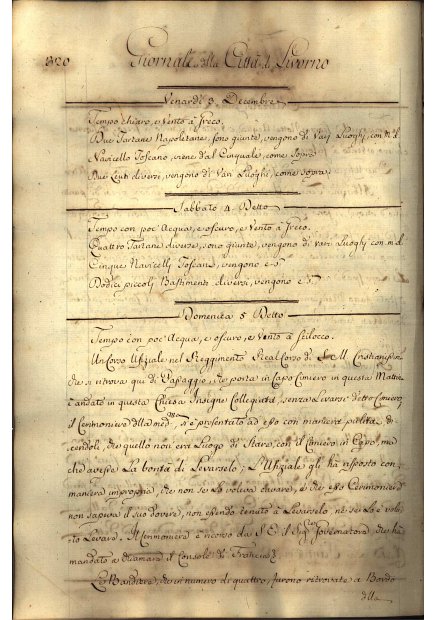 1320 Giornale della Città di Livorno
Venardì 3 Decembre
Tempo chiaro, e Vento à Greco.
Due Tartane Napoletane sono giunte, vengono di Varj Luoghi, con m.d.
Navicello Toscano, viene dal Cinquale, come sopra
Due Leuti diversi, vengono di Varj Luoghi, come sopra.
Sabbato 4 Detto
Tempo con poc' Acqua, e oscuro, e Vento à Greco.
Quattro Tartane diverse, sono giunte, vengono di Varj Luoghi con m.d.
Cinque Navicelli Toscani, vengono e s.
Dodici piccoli Bastimenti diversi, vengono e s.
Domenica 5 Detto
Tempo con poc' Acqua, e oscuro, e Vento à Scilocco.
Un Corso Ufiziale nel Reggimento Real Corso di S. M. Cristianissima
che si ritrova qui di Passaggio, che porta in Capo Cimiero in questa Mattina
è andato in questa Chiesa Insigne Collegiata, senza Levarsi detto Cimiero,
il Cerimoniere della med.ma, s'è presentato ad esso con maniera pulita, di-
cendoli, che quello non era Luogo di stare con il Cimiero in Capo, ma
che avesse La bontà di Levarselo; L'Ufiziale gli hà risposto con
maniera impropria, che non se Lo voleva cavare, e che esso Cerimoniere
non sapeva il suo dovere, non essendo tenuto à Levarselo, nè se Lo è volu-
to Levare. Il Cerimoniere è ricorso da S. E. il Sig.r Governatore, che hà
mandato à chiamare il Console di Francia
Le Bandiere, che in numero di quattro, furono ritrovate a Bordo
della